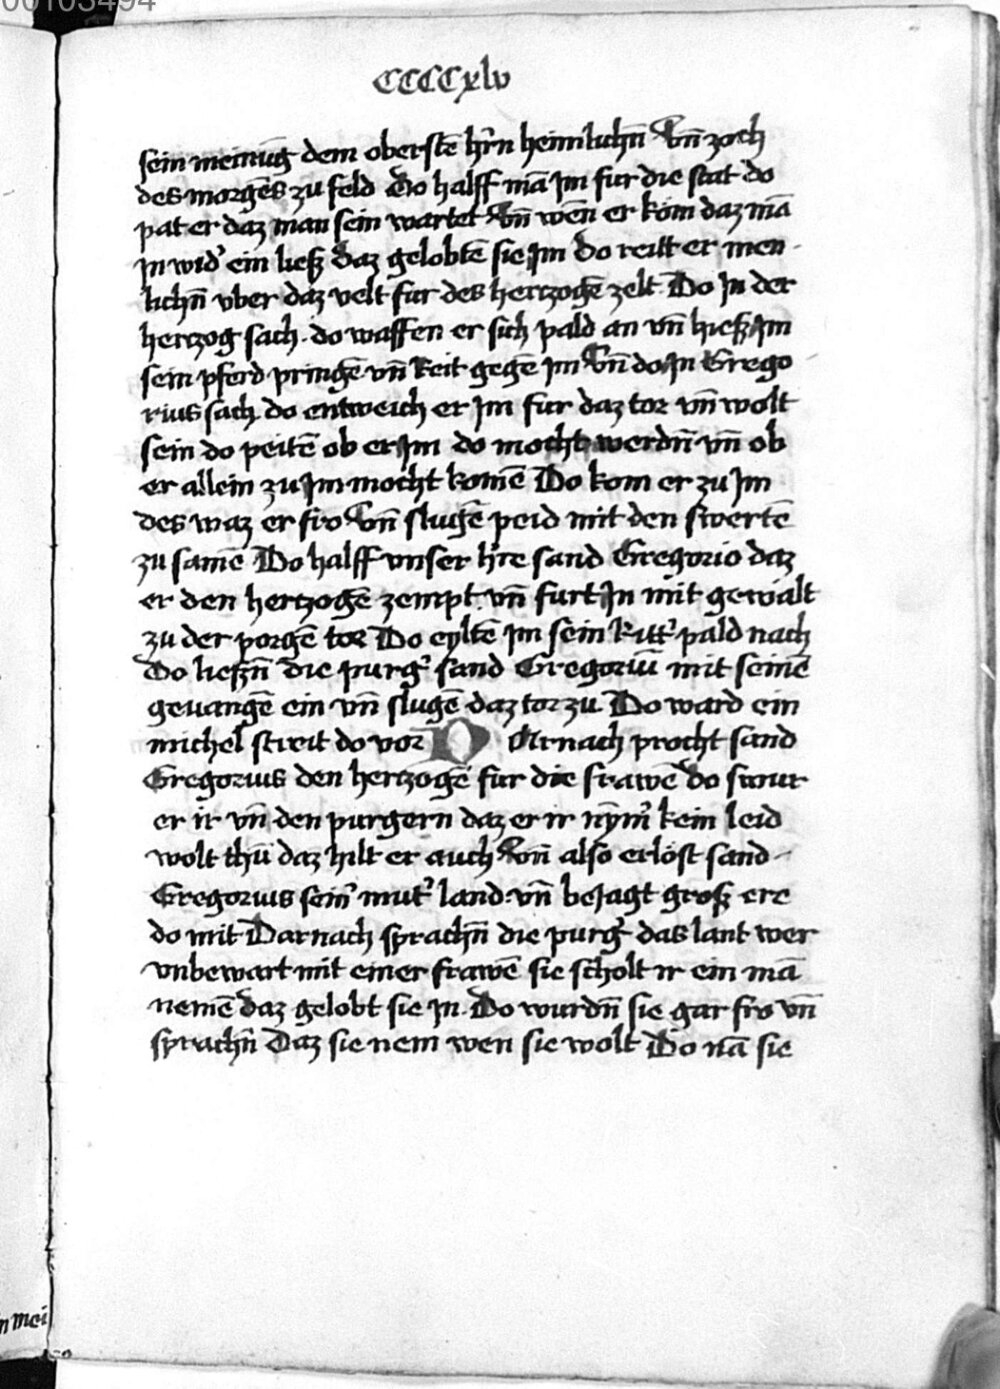 00103494
CCCCxlv
sein meinūg dem oberstē hr̄n heimlichn̄ Vn̄ zoch
des morgēs zu feld Do halff mā Jm fur die stat do
pat er daz man sein wartet Vn̄ wen er kōm daz mā
Jn wid' ein liesz daz gelobtē sie Jm Do reitt er men
lichn̄ vber daz velt fur des hertzogē zelt Do Jn der
hertzog sach do waffen er sich pald an vn̄ hiesz Jm
sein pferd pringē vn̄ Reit gegē Jm Vn̄ do Jn Grego
rius sach do entweich er Jm fur daz tor vn̄ wolt
sein do peitē ob er Jm do mocht werdn̄ vn̄ ob
er allein zu Jm mocht komē Do kom er zu Jm
des waz er fro Vn̄ slugē peid mit den swertē
zu samē Do halff vnser h're sand Gregorio daz
er den hertzogē zempt vn̄ furt Jn mit gewalt
zu der porgē tor Do eyltē Jm sein Ritt' pald nach
Do lieszn̄ die purg' sand Gregoriū mit seinē
geuangē ein vn̄ slugē daz tor zu Do ward ein
michel streit do vor D Arnach procht sand
Gregorius den hertzogē fur die frawē do swur
er ir vn̄ den purgern daz er ir nȳm' kein leid
wolt thū daz hilt er auch Vn̄ also erlost sand
Gregorius sein' mut' land vn̄ beJagt grosz ere
do mit Darnach sprachn̄ die purg' das lant wer
vnbewart mit einer frawē sie scholt ir ein mā
nemē daz gelobt sie Jn Do wurdn̄ sie gar fro vn̄
sprachn̄ Daz sie nem wen sie wolt Do nā sie
n mei